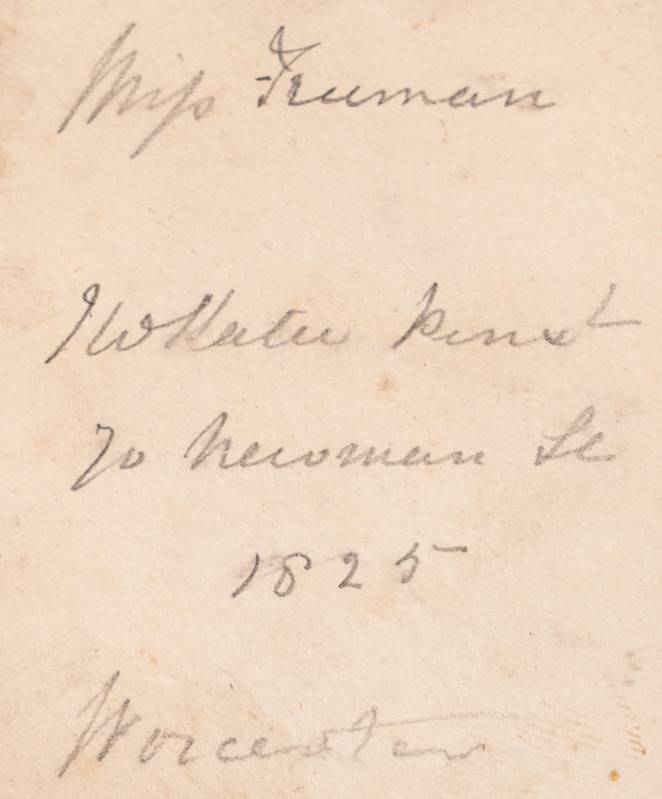 Miss Truman
J W Slater pinxt
70 Newman St
1825
Worcester